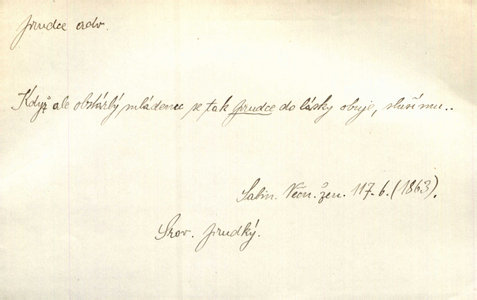 prudce adv.
Když ale obstárlý mládenec se tak prudce do lásky obuje, sluší mu..
Sabin. Věčn. žen. 117. b. (1863).
Srov. prudký.